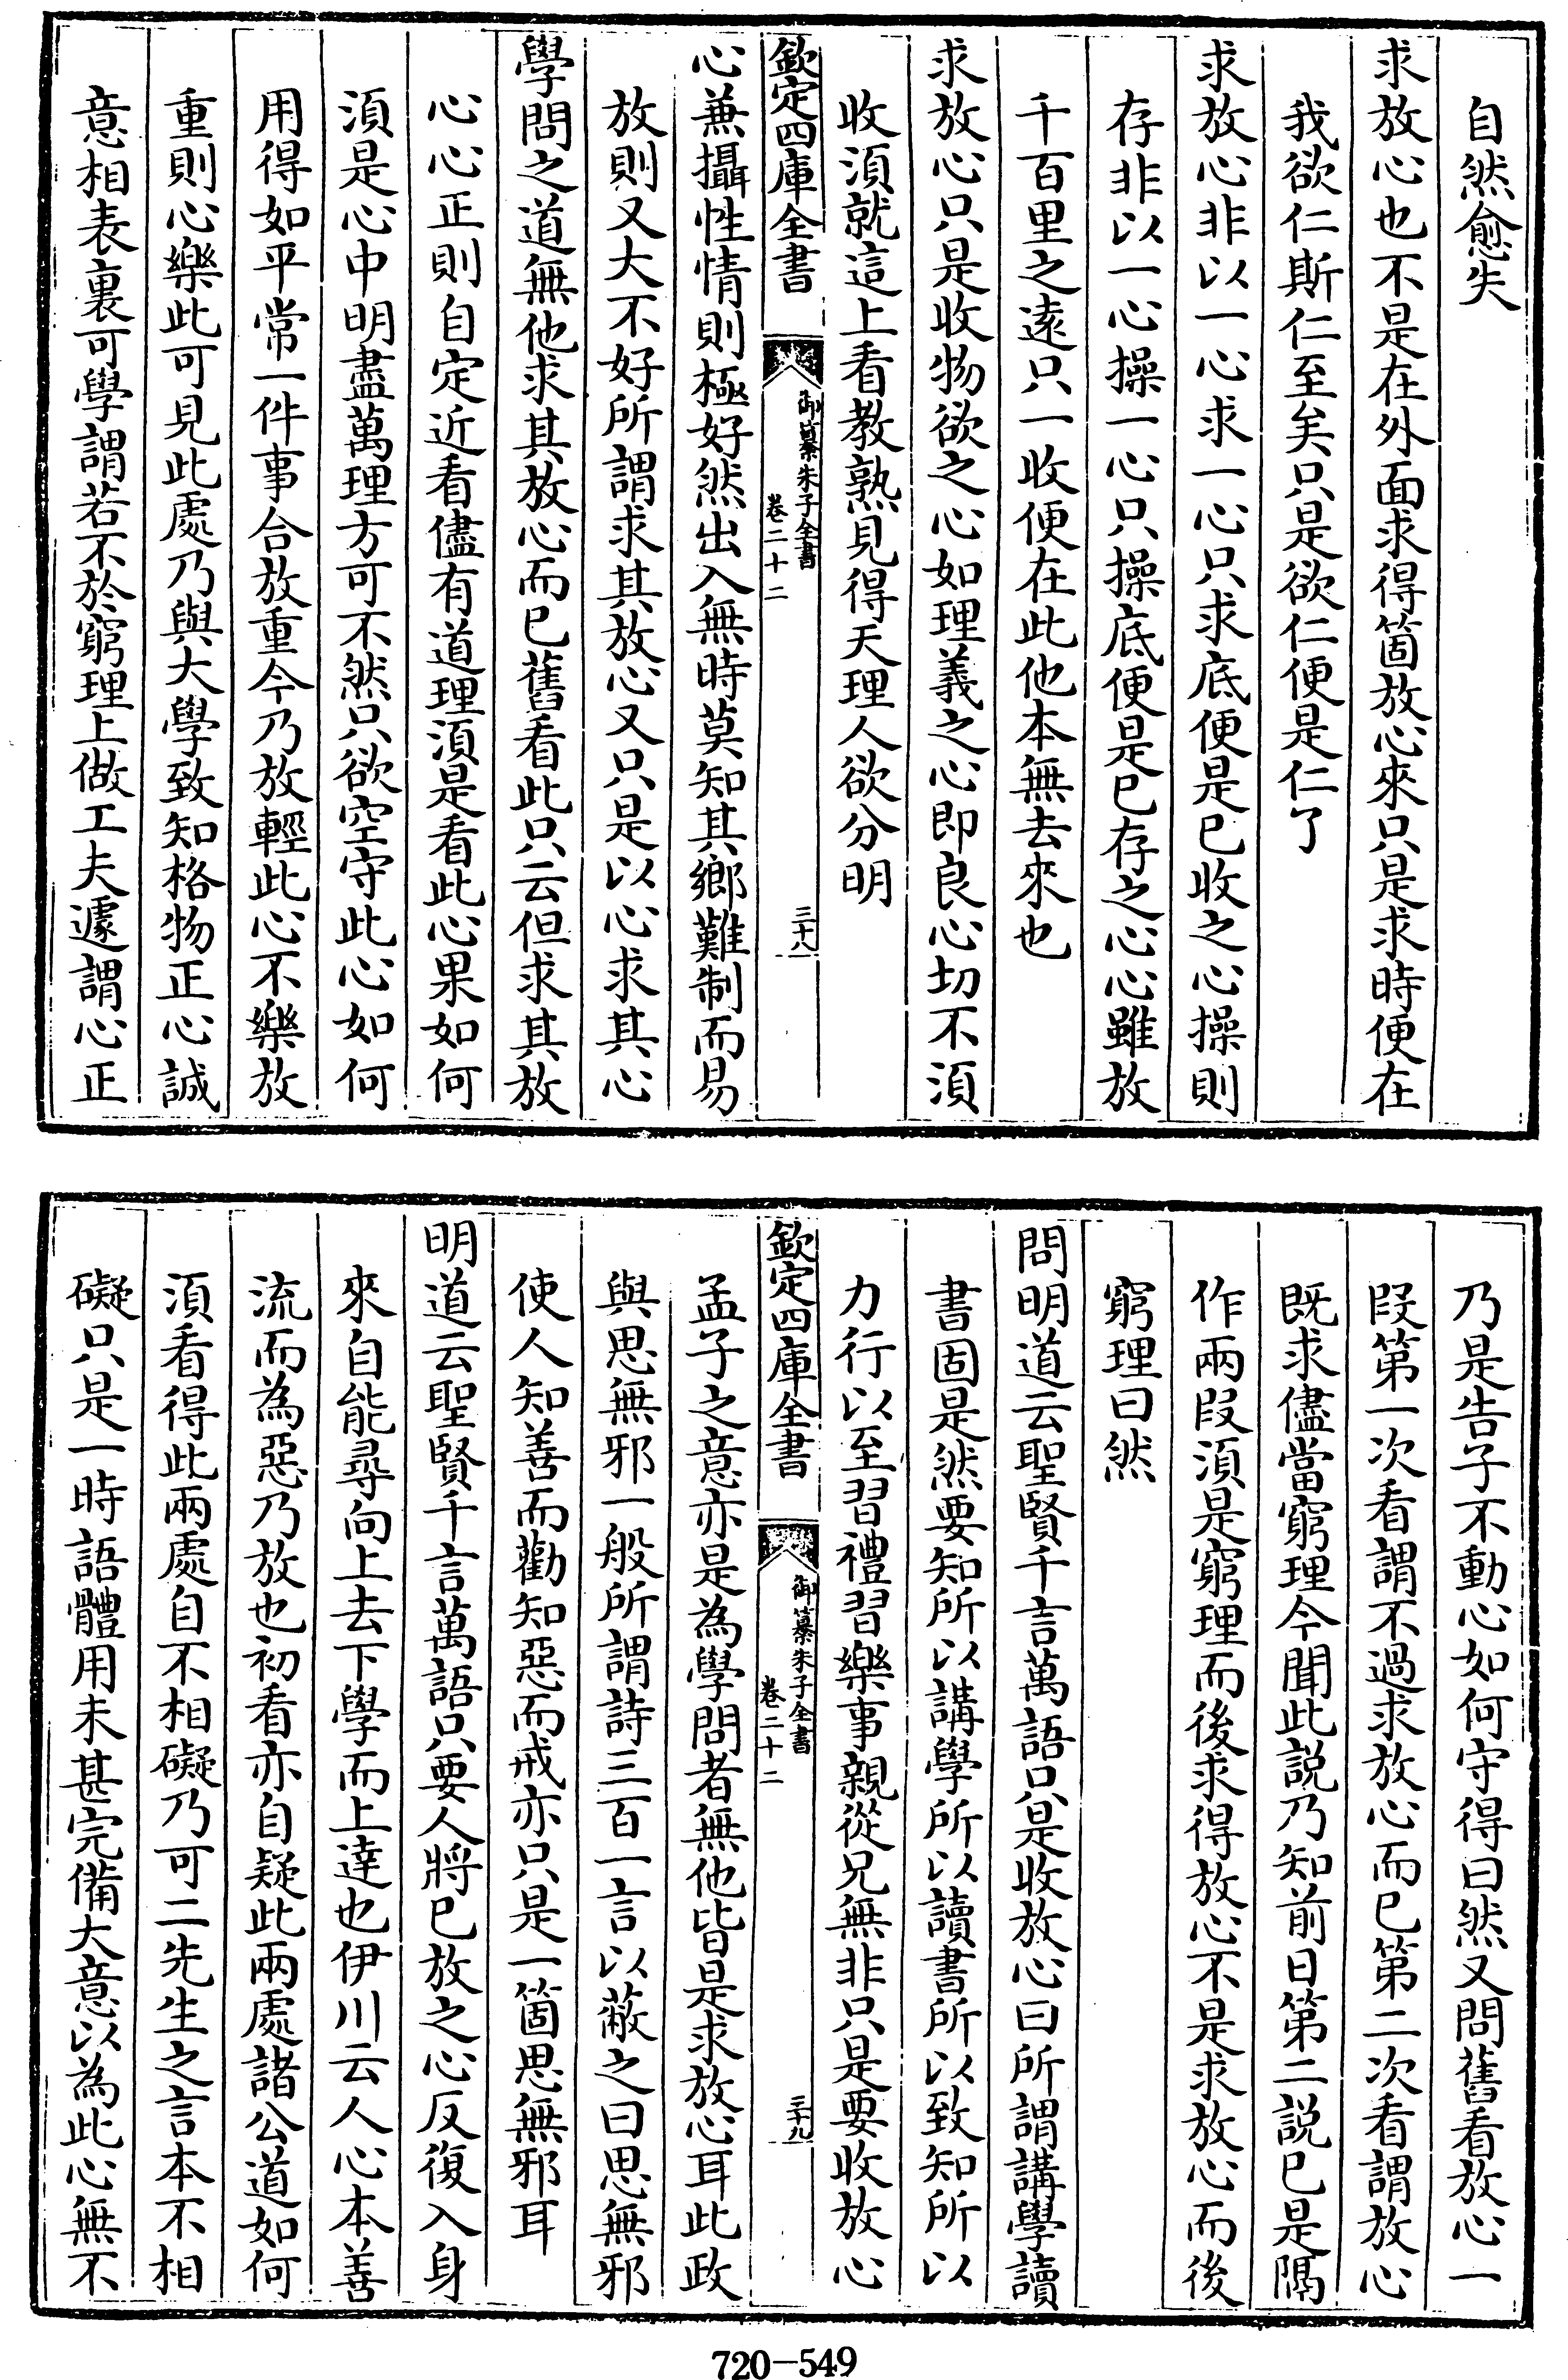 自然愈失
求放心也不是在外面求得箇放心來只是求時便在
我欲仁斯仁至矣只是欲仁便是仁了
求放心非以一心求一心只求底便是已收之心操則
存非以一心操一心只操底便是已存之心心雖放
千百里之遠只一收便在此他本無去來也
求放心只是收物欲之心如理義之心即良心切不須
收須就這上看教熟見得天理人欲分明
欽定四庫全書
御纂朱子全書
卷二十二
三十八
心兼攝性情則極好然出入無時莫知其鄉難制而易
放則又大不好所謂求其放心又只是以心求其心
學問之道無他求其放心而已舊看此只云但求其放
心心正則自定近看儘有道理須是看此心果如何
須是心中明盡萬理方可不然只欲空守此心如何
用得如平常一件事合放重今乃放輕此心不樂放
重則心樂此可見此處乃與大學致知格物正心誠
意相表裏可學謂若不於窮理上做工夫遽謂心正
乃是告子不動心如何守得曰然又問舊看放心一
段第一次看謂不過求放心而已第二次看謂放心
既求儘當窮理今聞此説乃知前日第二説已是隔
作兩段須是窮理而後求得放心不是求放心而後
窮理曰然
問明道云聖賢千言萬語只是收放心曰所謂講學讀
書固是然要知所以講學所以讀書所以致知所以
力行以至習禮習樂事親從兄無非只是要收放心
欽定四庫全書
御纂朱子全書
卷二十二
三十九
孟子之意亦是為學問者無他皆是求放心耳此政
與思無邪一般所謂詩三百一言以蔽之曰思無邪
使人知善而勸知惡而戒亦只是一箇思無邪耳
明道云聖賢千言萬語只要人將已放之心反復入身
來自能尋向上去下學而上達也伊川云人心本善
流而為惡乃放也初看亦自疑此兩處諸公道如何
須看得此兩處自不相礙乃可二先生之言本不相
礙只是一時語體用未甚完備大意以為此心無不
720-549